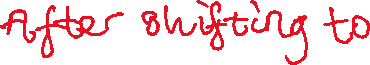 After shifting to